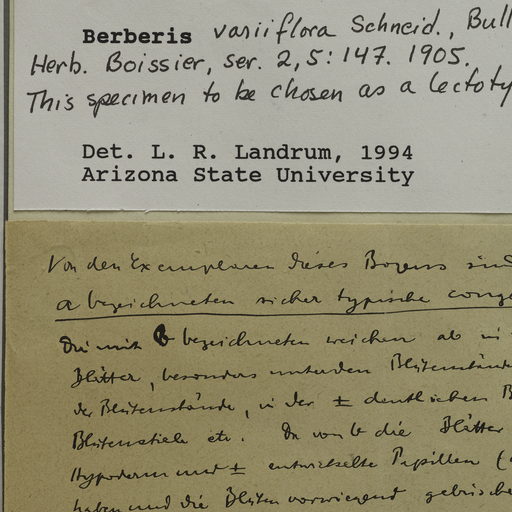 Berberis variiflora Schneid., Bull
Herb. Boissier, ser. 2, 5: 147. 1905.
This specimen to be chosen as a lectoty
Det. L. R. Landrum, 1994
Arizona State University
Von den Exemplaren dieses Bogens sind
a bezeichneten sicher typische cong
Die mit b bezeichneten weichen ab in
Blätter, besonders unter den Blütenstände
der Blütenstände, in der ± deutlichen B
Blütenstiele etc. Da von b die Blätter
Hypoderm und ± entwickelte Papillen (
haben und die Blüten vorwiegend gebüsche